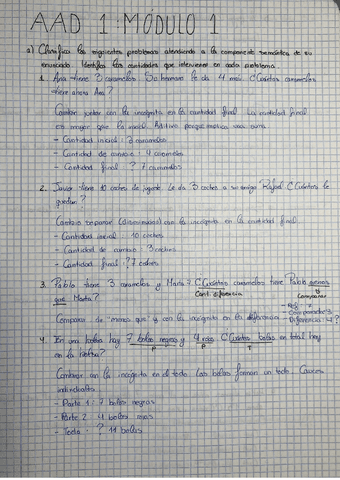 AAD 1 · MÓDULO 1
a) Clasifica los siguientes problemas atendiendo a la componente semántica de su
enunciado. Identifica las cantidades que intervienen en cada problema.
1. Ana tiene 3 caramelos. Su hermano le da 4 más ¿Cuántos caramelos
tiene ahora Ana?
Cambiar juntar con la incógnita en la cantidad final. La cantidad final
es mayor que la inicial. Aditivo porque implica una suma
- Cantidad inicial: 3 caramelos
- Cantidad de cambio: 4 caramelos
- Cantidad final: ? 7 caramelos
2. Javier tiene 10 coches de juguete. Le da 3 coches a su amigo Rafael ¿Cuántos le
quedan?
Cambio separar (disminución) con la incógnita en la cantidad final
- Cantidad inicial: 10 coches
- Cantidad de cambio: 3 coches
- Cantidad final: ? 7 coches
3. Pablo tiene 3 caramelos y Marta 7. ¿Cuántos caramelos tiene Pablo menos
que Marta?
Cant. diferencia
Comparar
- Ref: 7
- Comparado: 3
- Diferencia: 4?
Comparar de "menos que" y con la incógnita en la diferencia
4. En una bolsa hay 7 bolas negras y 4 rojas ¿Cuántas bolas en total hay
en la bolsa?
P P T
Combinar con la incógnita en el todo. Las bolas forman un todo.
individuales.
- Parte 1: 7 bolas negras
- Parte 2: 4 bolas rojas
- Todo: ? 11 bolas